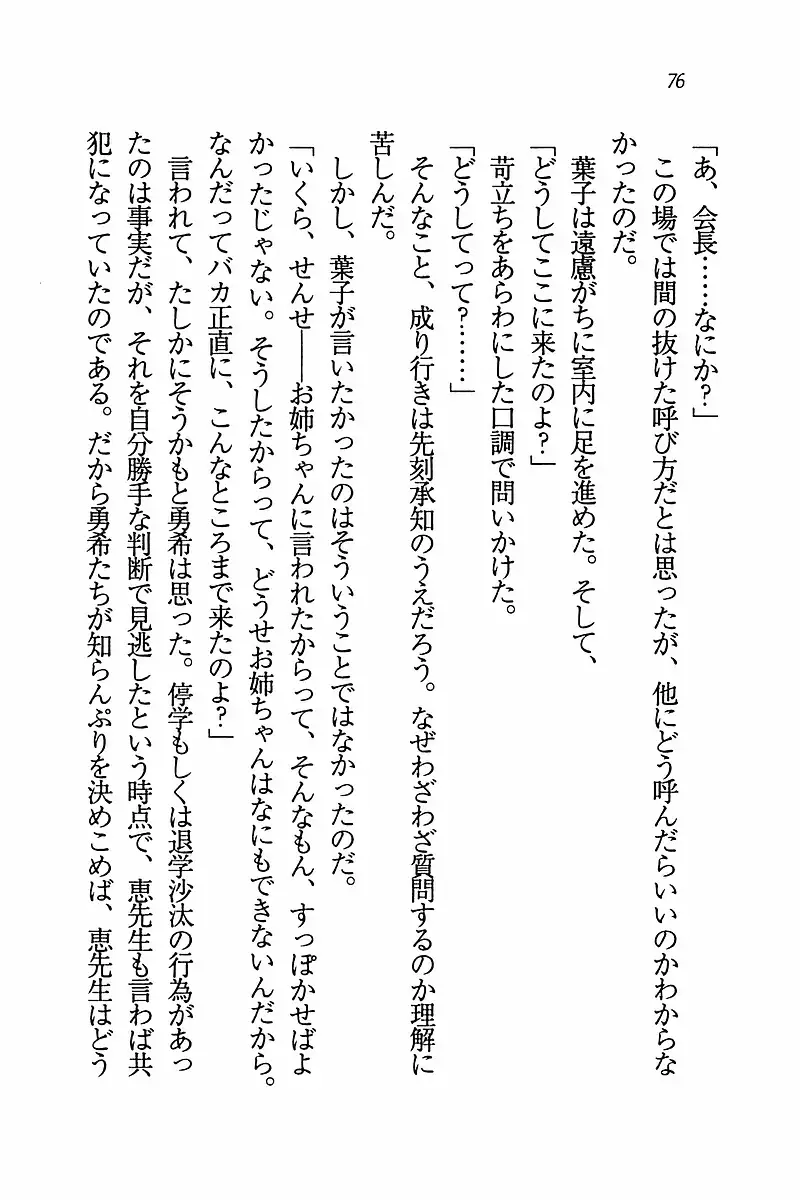 76
「あ、会長……なにか？」
この場では間の抜けた呼び方だとは思ったが、他にどう呼んだらいいのかわからな
かったのだ。
葉子は遠慮がちに室内に足を進めた。そして、
「どうしてここに来たのよ？」
苛立ちをあらわにした口調で問いかけた。
「どうしてって？……」
そんなこと、成り行きは先刻承知のうえだろう。なぜわざわざ質問するのか理解に
苦しんだ。
しかし、葉子が言いたかったのはそういうことではなかったのだ。
「いくら、せんせ――お姉ちゃんに言われたからって、そんなもん、すっぽかせばよ
かったじゃない。そうしたからって、どうせお姉ちゃんはなにもできないんだから。
なんだってバカ正直に、こんなところまで来たのよ？」
言われて、たしかにそうかもと勇希は思った。停学もしくは退学沙汰の行為があっ
たのは事実だが、それを自分勝手な判断で見逃したという時点で、恵先生も言わば共
犯になっていたのである。だから勇希たちが知らんぷりを決めこめば、恵先生はどう